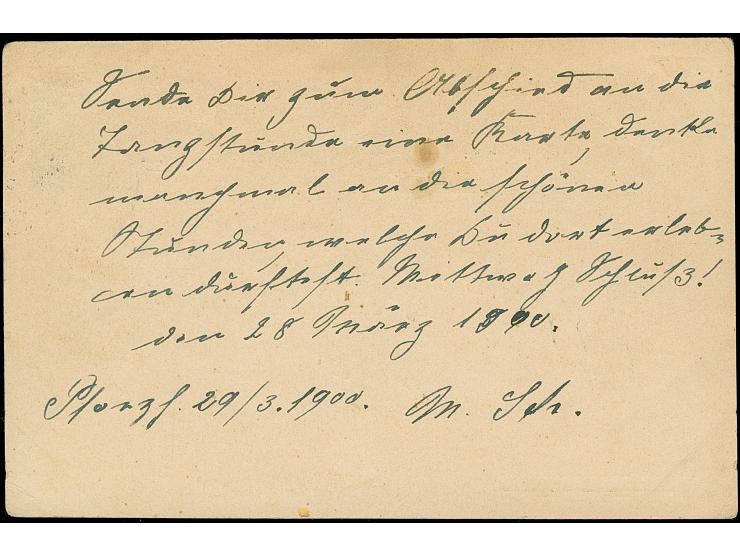 Sende Dir zum Abschied an die
Tanzstunde eine Karte, denke
manchmal an die schönen
Stunden, welche Du dort erleb=
en durftest. Mittwoch Schluß!
den 28 März 1900.
Pforzh. 29/3. 1900. M. Sch.